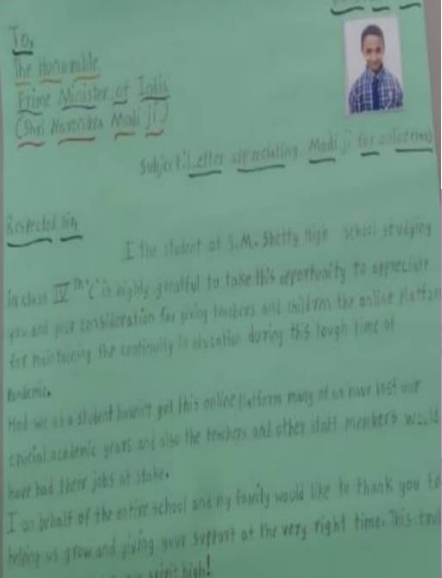 To,
The Honorable
Prime Minister of India
(Shri Narendra Modi ji)
Subject: Letter appreciating Modi ji for
Respected Sir,
I the student of S.M. Shetty High school studying
in class IV Th 'C' is highly grateful to take this opportunity to appreciate
you and your consideration for giving teachers and children the online platform
for maintaining the continuity in education during this tough time of
Pandemic.
Had we as a student haven't got this online platform many of us have lost our
crucial academic years and also the teachers and other staff members would
have had their jobs at stake.
I on behalf of the entire school and my family would like to thank you for
helping us grow and giving your support at the very right time. This
spirit high!